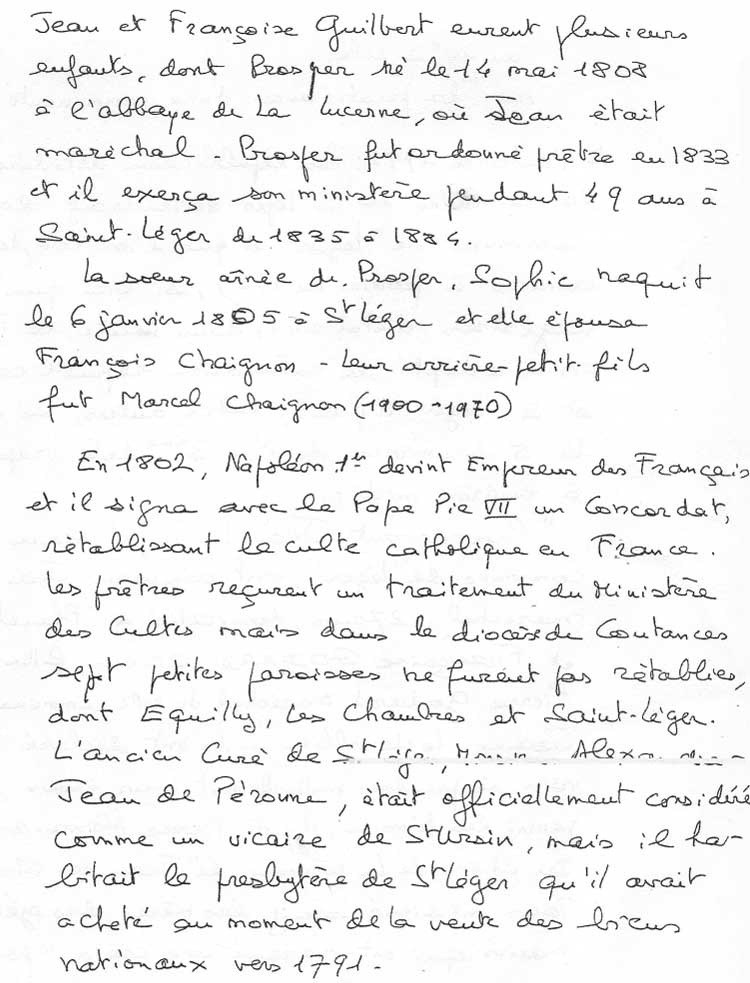 Jean et Françoise Guilbert eurent plusieurs
enfants, dont Prosper né le 14 mai 1808
à l'abbaye de La Lucerne, où Jean était
maréchal - Prosper fut ordonné prêtre en 1833
et il exerça son ministère pendant 49 ans à
Saint-Léger de 1835 à 1884.
La soeur aînée de Prosper, Sophie naquit
le 6 janvier 1805 à St Léger et elle épousa
François Chaignon - Leur arrière-petit-fils
fut Marcel Chaignon (1900-1970)
En 1802, Napoléon 1er devint Empereur des Français
et il signa avec le Pape Pie VII un Concordat,
rétablissant le culte catholique en France.
Les prêtres reçurent un traitement du Ministère
des Cultes mais dans le diocèse de Coutances
sept petites paroisses ne furent pas rétablies,
dont Equilly, Les Chambres et Saint-Léger.
L'ancien Curé de St Léger,
Jean de Péronne, était officiellement considéré
comme un vicaire de St Ursin, mais il ha-
bitait le presbytère de St Léger qu'il avait
acheté au moment de la vente des biens
nationaux vers 1791.